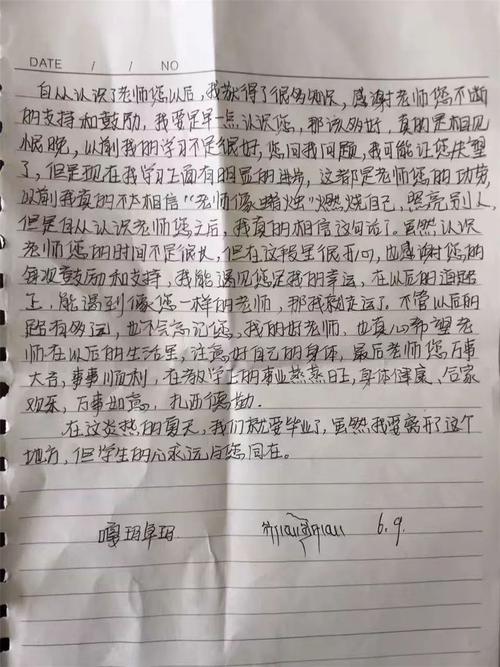 DATE / / NO
自从认识了老师您以后，我获得了很多知识，感谢老师您不断
的支持和鼓励，我要是早一点认识您，那该多好，真的是相见
恨晚，以前我的学习不是很好，您问我问题，我可能让您失望
了，但是现在我学习上面有明显的进步，这都是老师您的功劳
以前我真的不太相信“老师像蜡烛”燃烧自己，照亮别人，
但是自从认识老师您之后，我真的相信这句话了。虽然认识
老师您的时间不是很长，但在这段里很开心，也感谢您的
每次鼓励和支持，我能遇见您是我的幸运，在以后的道路
上，能遇到像您一样的老师，那我就幸运了，不管以后的
路有多远，也不会忘记您，我的好老师，也真心希望老
师在以后的生活里，注意好自己的身体，最后老师您万事
大吉，事事顺利，在教学上的事业蒸蒸日上，身体健康、合家
欢乐，万事如意，扎西德勒.
在这炎热的夏天，我们就要毕业了，虽然我要离开了这个
地方，但学生的心永远与您同在。
嘎玛卓玛 6.9.